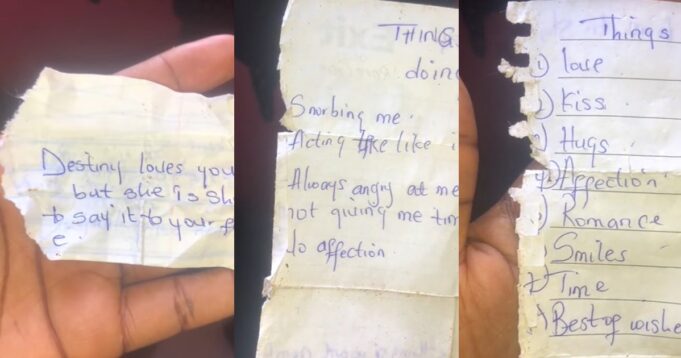 Destiny loves you
but she is sh
to say it to your f
e.
THING
doing
Snorbing me.
Acting like like i
Always angry at me
not giving me tim
do affection
Things
1) love
2) Kiss
3) Hugs
4) Affection
5) Romance
Smiles
7) Time
8) Best of wishe